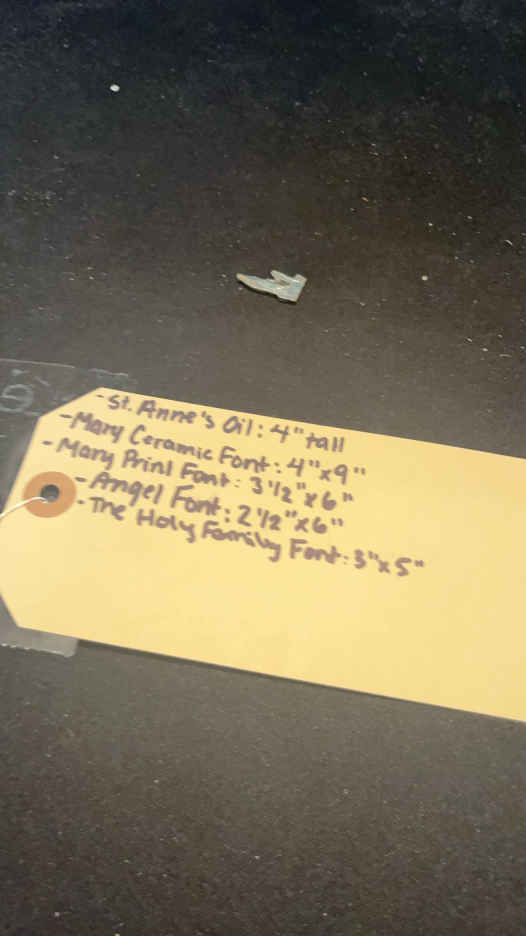 - St. Anne's Oil: 4" tall
- Mary Ceramic Font: 4"x9"
- Mary Print Font: 3 1/2"x6"
- Angel Font: 2 1/2"x6"
- The Holy Family Font: 3"x5"